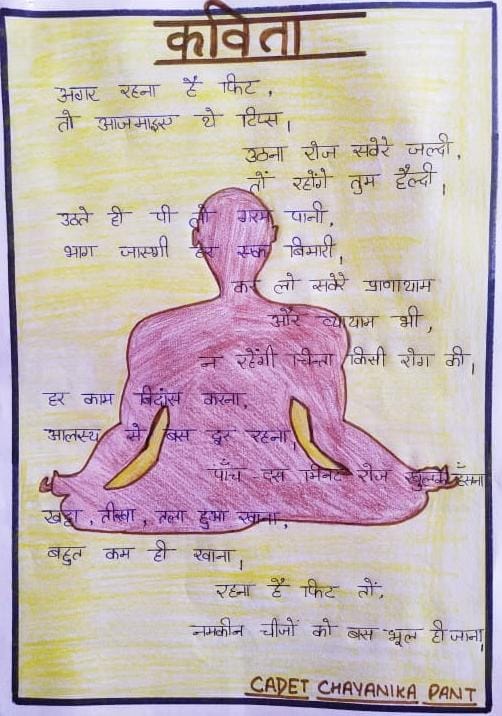 कविता
अगर रहना है फिट,
तो आजमाइए ये टिप्स।
उठना रोज सवेरे जल्दी,
तों रहोंगे तुम हैल्दी,
उठते ही पी लो गरम पानी,
भाग जाएगी हर एक बिमारी,
कर लो सवेरे प्राणायाम
और व्यायाम भी,
न रहेंगी चिन्ता किसी रोग की।
हर काम बिदांस करना,
आलस्य से बस दूर रहना।
पाँच दस मिनट रोज खुलके हँसना
खट्टा, तीखा, तला हुआ खाना,
बहुत कम ही खाना।
रहना है फिट तों,
नमकीन चीजों को बस भूल ही जाना।
CADET CHAYANIKA PANT